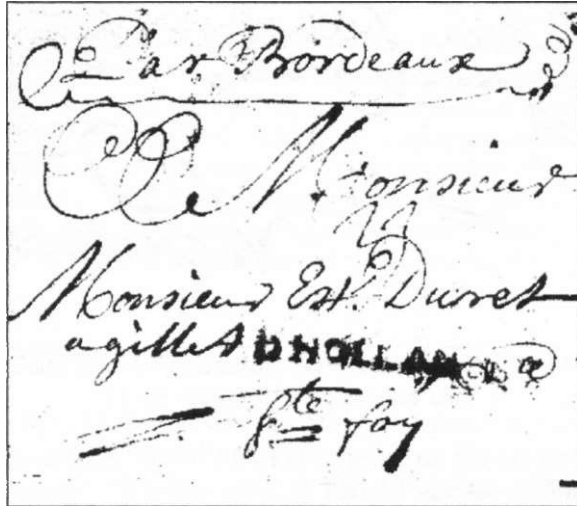 Par Bordeaux
A Monsieur
Monsieur Est. Duret
a gillet D'HOLLAN
Ste foy